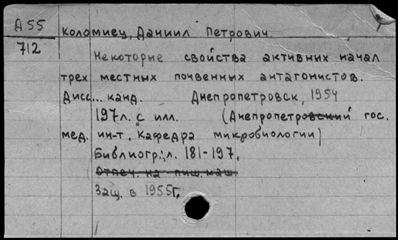 А55
712
Коломиец, Даниил Петрович.
Некоторые свойства активных начал
трех местных почвенных антагонистов.
Дисс... канд. Днепропетровск, 1954
197л. с илл. (Днепропетровский гос.
мед. ин-т. Кафедра микробиологии)
Библиогр.: л. 181-197.
Отпеч. на пиш. маш.
Защ. в 1955г.